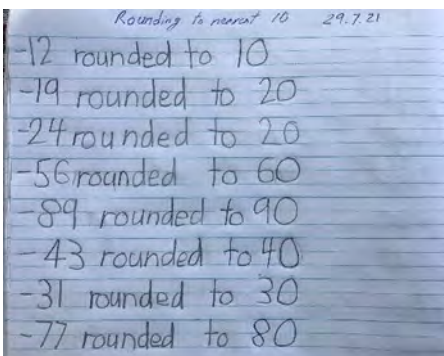 Rounding to nearest 10 29.7.21
-12 rounded to 10
-19 rounded to 20
-24 rounded to 20
-56 rounded to 60
-89 rounded to 90
-43 rounded to 40
-31 rounded to 30
-77 rounded to 80